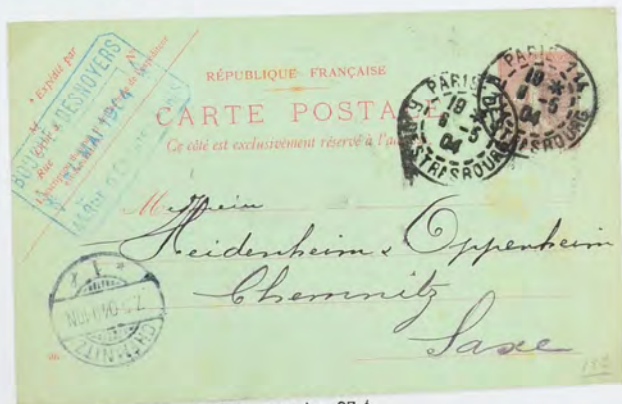 * Expédié par
M
Rue
BOUCHÉ & DESNOYERS
MAI 1904
RÉPUBLIQUE FRANÇAISE
CARTE POSTALE
Ce côté est exclusivement réservé à l'ad
PARIS
19 *
6 - 5
04
STRASBOURG
PARIS 14
19 *
6 - 5
04
R. DE STRASBOURG
M
Heidenheim & Oppenheim
Chemnitz
Saxe
CHEMNITZ
* 1 *